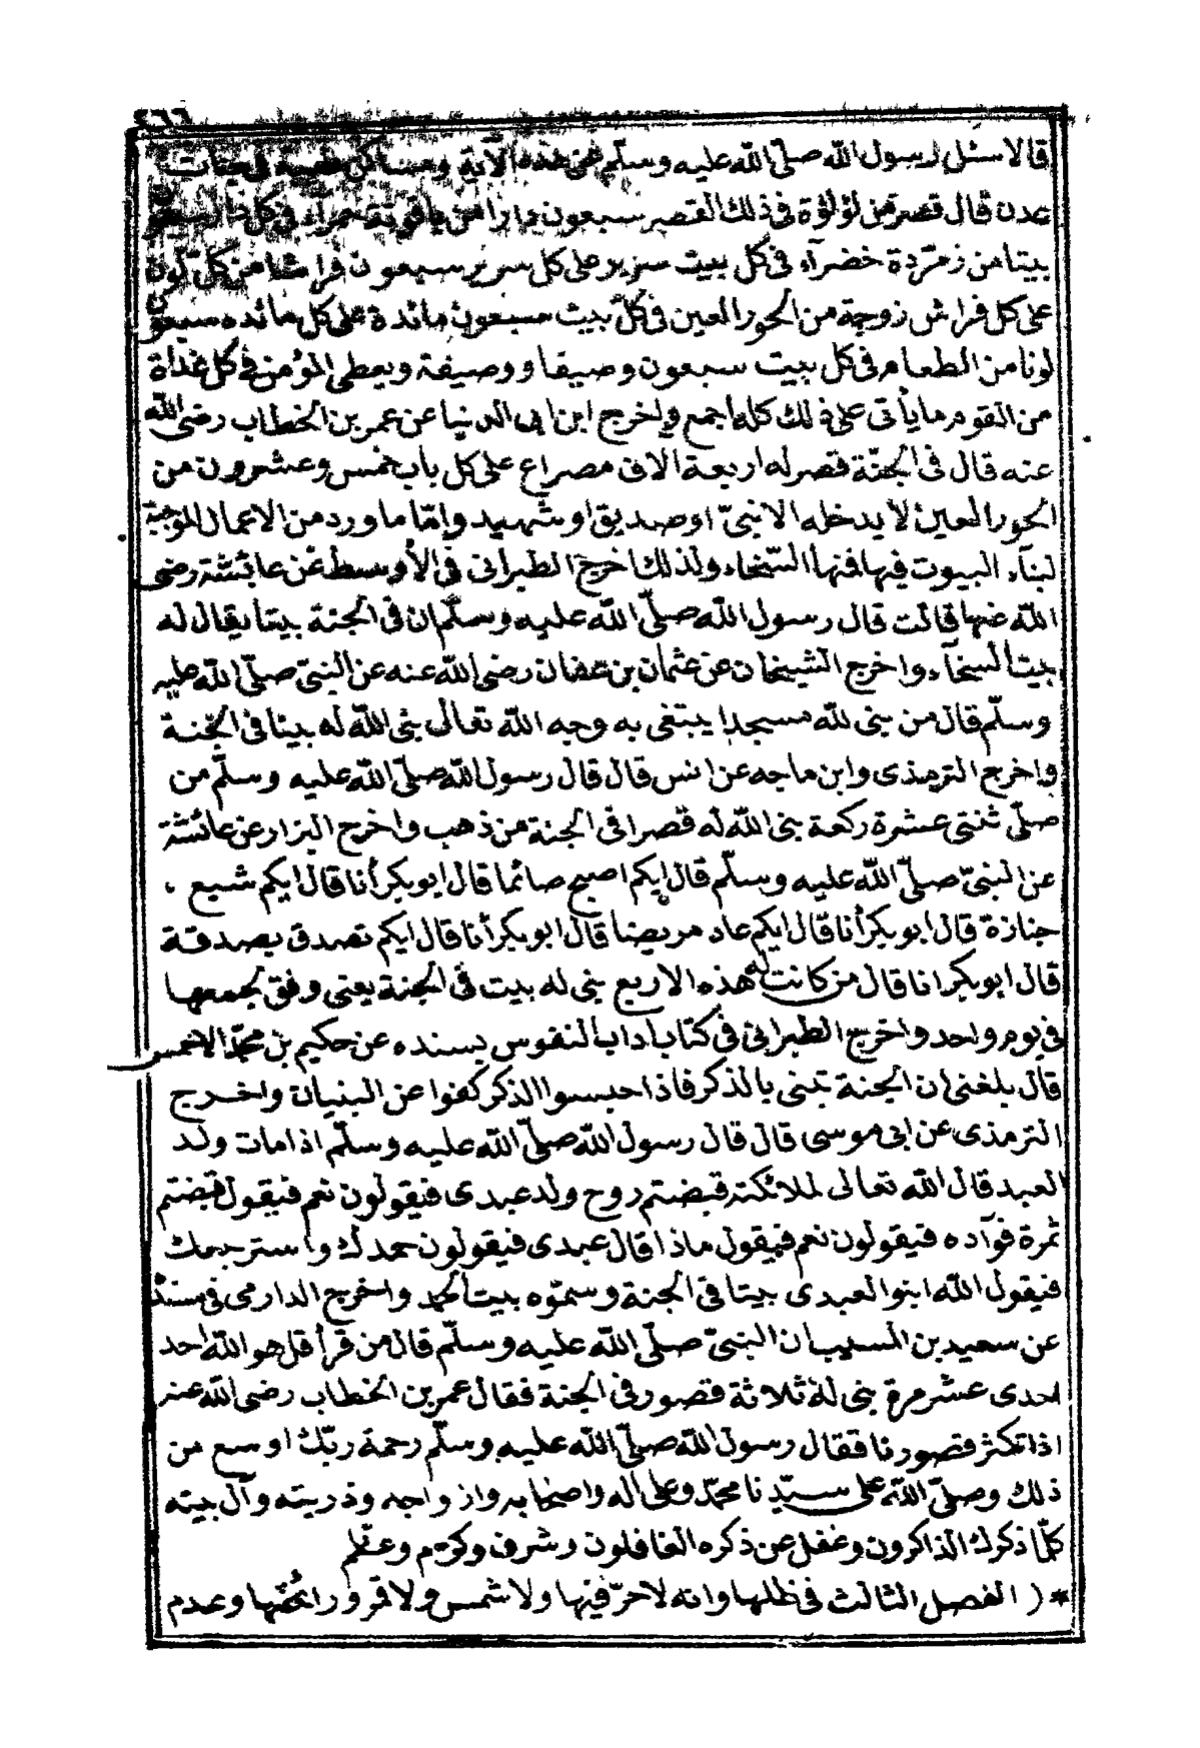 ٤٦٦
قالا سئل رسول الله صلّى الله عليه وسلّم عن هذه الآية ومساكن طيبة في جنات
عدن قال قصر من لؤلؤة في ذلك القصر سبعون دارا من ياقوتة حمرآء في كل دار سبعون
بيتا من زمرّدة خضرآء في كل بيت سرير على كل سرير سبعون فراشا من كل لون
على كل فراش زوجة من الحور العين في كل بيت سبعون مائدة على كل مائده سبعون
لونا من الطعام في كل بيت سبعون وصيفا ووصيفة ويعطى المؤمن في كل غداة
من القوم ما يأتى على ذلك كله اجمع واخرج ابن ابى الدنيا عن عمر بن الخطاب رضى الله
عنه قال فى الجنّة قصر له اربعة الاف مصراع على كل باب خمس وعشرون من
الحور العين لا يدخله الا نبىّ او صديق او شهيد وامّا ما ورد من الاعمال الموجبة
لبنآء البيوت فيها فمنها السّخاء ولذلك اخرج الطبرانى فى الأوسط عن عائشة رضى
الله عنها قالت قال رسول الله صلّى الله عليه وسلّم ان فى الجنة بيتا يقال له
بيت السخآء واخرج الشيخان عن عثمان بن عفان رضى الله عنه عن النبىّ صلّى الله عليه
وسلّم قال من بنى لله مسجدا يبتغى به وجه الله تعالى بنى الله له بيتا فى الجنّة
واخرج الترمذى وابن ماجه عن انس قال قال رسول الله صلّى الله عليه وسلّم من
صلّى ثنتى عشرة ركعة بنى الله له قصرا فى الجنة من ذهب واخرج البزار عن عائشة
عن النبىّ صلّى الله عليه وسلّم قال ايكم اصبح صائما قال ابو بكر أنا قال ايكم شيع
جنازة قال ابو بكر أنا قال ايكم عاد مريضا قال ابو بكر أنا قال ايكم تصدق بصدقة
قال ابو بكر انا قال من كانت له هذه الاربع بنى له بيت فى الجنة يعنى وفق لجمعها
فى يوم واحد واخرج الطبرانى فى كتاب اداب النفوس بسنده عن حكيم بن محمّد الاخمس
قال بلغنى ان الجنة تبنى بالذكر فاذا حبسوا الذكر كفوا عن البنيان واخرج
الترمذى عن ابى موسى قال قال رسول الله صلّى الله عليه وسلّم اذا مات ولد
العبد قال الله تعالى لملائكته قبضتم روح ولد عبدى فيقولون نعم فيقول قبضتم
ثمرة فوآده فيقولون نعم فيقول ماذا قال عبدى فيقولون حمدك واسترجعك
فيقول الله ابنوا لعبدى بيتا فى الجنة وسمّوه بيت الحمد واخرج الدارمى فى مسنده
عن سعيد بن المسيب ان النبىّ صلّى الله عليه وسلّم قال من قرأ قل هو الله احد
احدى عشر مرة بنى له ثلاثة قصور فى الجنة فقال عمر بن الخطاب رضى الله عنه
اذا تكثر قصورنا فقال رسول الله صلّى الله عليه وسلّم رحمة ربّك اوسع من
ذلك وصلّى الله على سيّدنا محمّد وعلى آله واصحابه وازواجه وذريته وآل بيته
كلّما ذكرك الذاكرون وغفل عن ذكره الغافلون وشرف وكرم وعظم
* ( الفصل الثالث فى ظلها وانه لا حرّ فيها ولا شمس ولا قمر ورائحتها وعدم